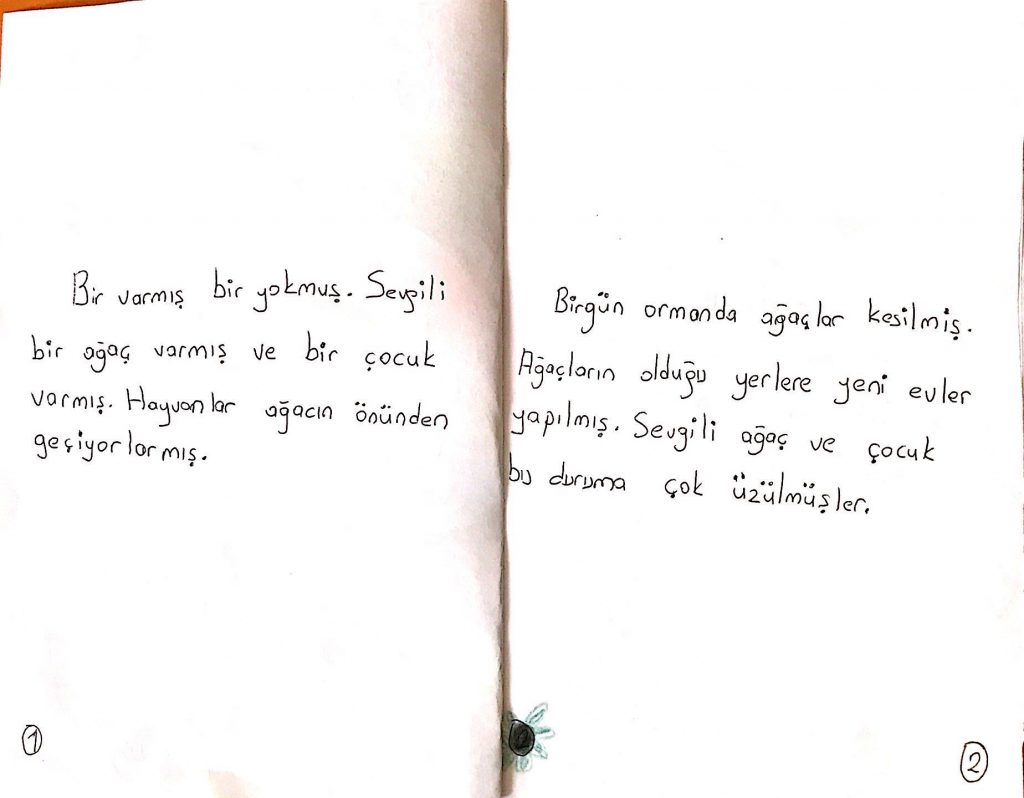 Bir varmış bir yokmuş. Sevgili
bir ağaç varmış ve bir çocuk
varmış. Hayvanlar ağacın önünden
geçiyorlarmış.
1
Birgün ormanda ağaçlar kesilmiş.
Ağaçların olduğu yerlere yeni evler
yapılmış. Sevgili ağaç ve çocuk
bu duruma çok üzülmüşler.
2